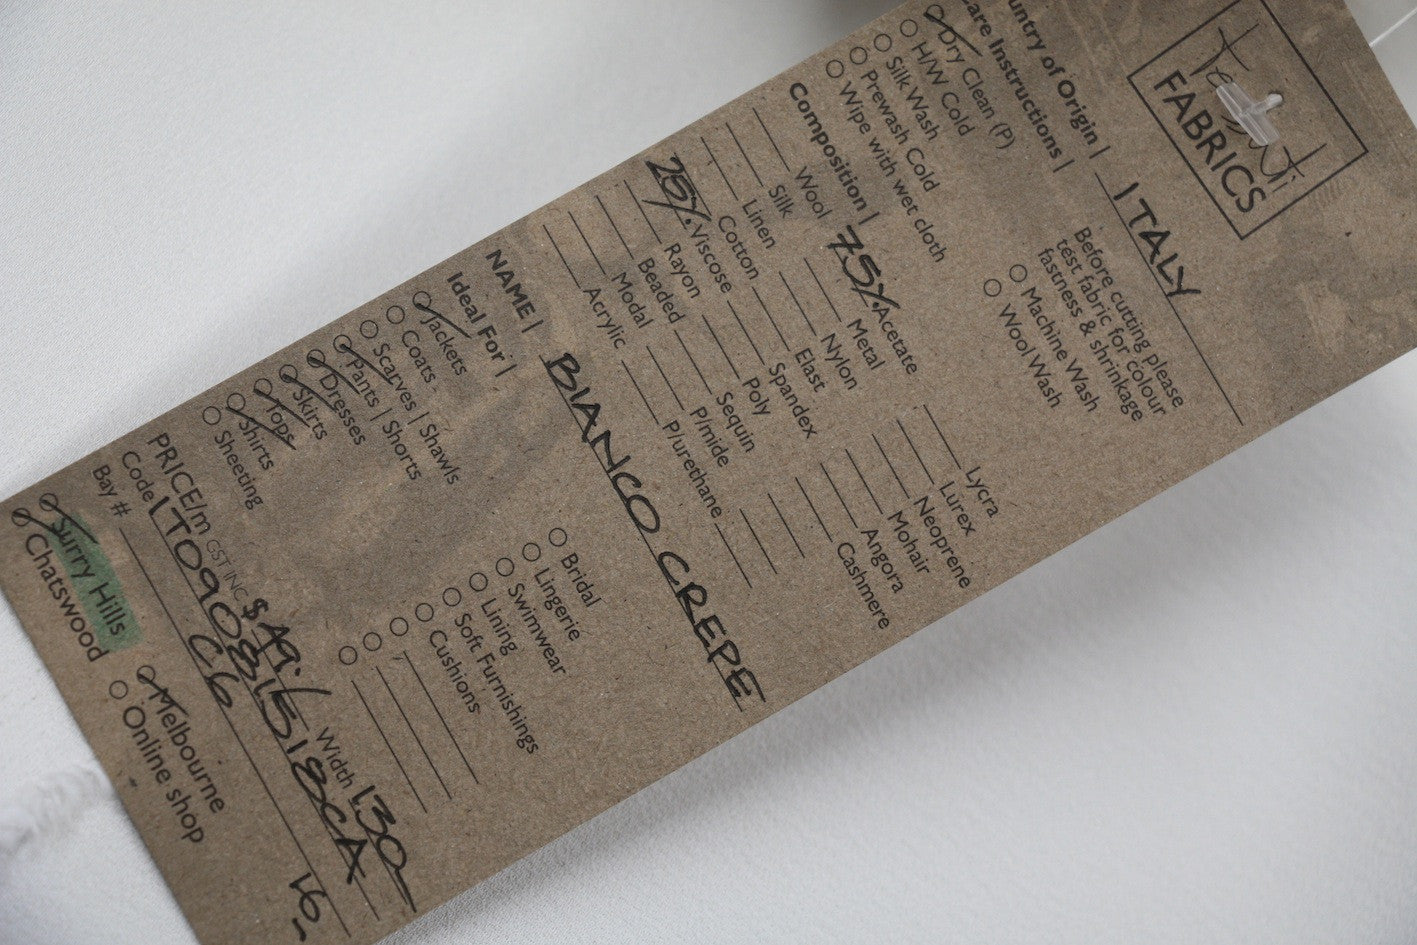 FABRICS
untry of Origin | ITALY
are Instructions |
Dry Clean (P)
H/W Cold
Silk Wash
Prewash Cold
Wipe with wet cloth
Before cutting please
test fabric for colour
fastness & shrinkage
Machine Wash
Wool Wash
Composition |
Wool
Silk
Linen
Cotton
25%. Viscose
Rayon
Beaded
Modal
Acrylic
75%. Acetate
Metal
Nylon
Elast
Spandex
Poly
Sequin
P/mide
P/urethane
Lycra
Lurex
Neoprene
Mohair
Angora
Cashmere
NAME | BIANCO CREPE
Ideal For |
Jackets
Coats
Scarves | Shawls
Pants | Shorts
Dresses
Skirts
Tops
Shirts
Sheeting
Bridal
Lingerie
Swimwear
Lining
Soft Furnishings
Cushions
PRICE/m GST INC $49. Width 1.30
Code
Bay # C6
Surry Hills
Chatswood
Melbourne
Online shop